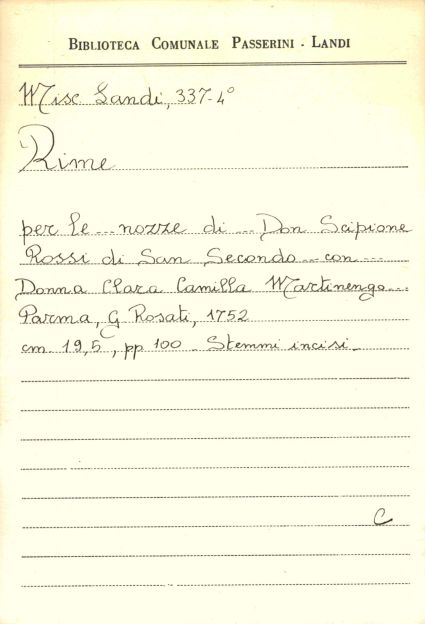 BIBLIOTECA COMUNALE PASSERINI - LANDI
Misc Landi, 337-4°
Rime
per le ... nozze di ... Don Scipione
Rossi di San Secondo ... con ...
Donna Clara Camilla Martinengo ...
Parma, G Rosati, 1752
cm 19,5, pp 100 - Stemmi incisi -
C